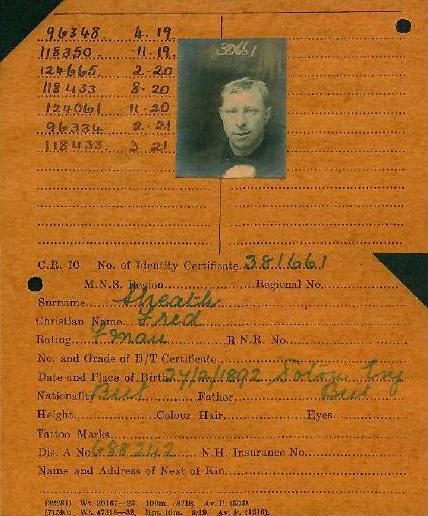 96348 4.19
118350 11.19
124665 2-20
118433 8-20
124061 11.20
96334 2-21
118433 3.21
C.R. 10. No. of Identity Certificate 381661
M.N.S. Region Regional No.
Surname Sheath
Christian Name Fred
Rating F'man R.N.R. No.
No. and Grade of B/T Certificate
Date and Place of Birth 24/2/1892 Soton Eng
Nationality Brit Father Brit
Height Colour Hair Eyes
Tattoo Marks
Dis. A No. 688242 N.H. Insurance No.
Name and Address of Next of Kin